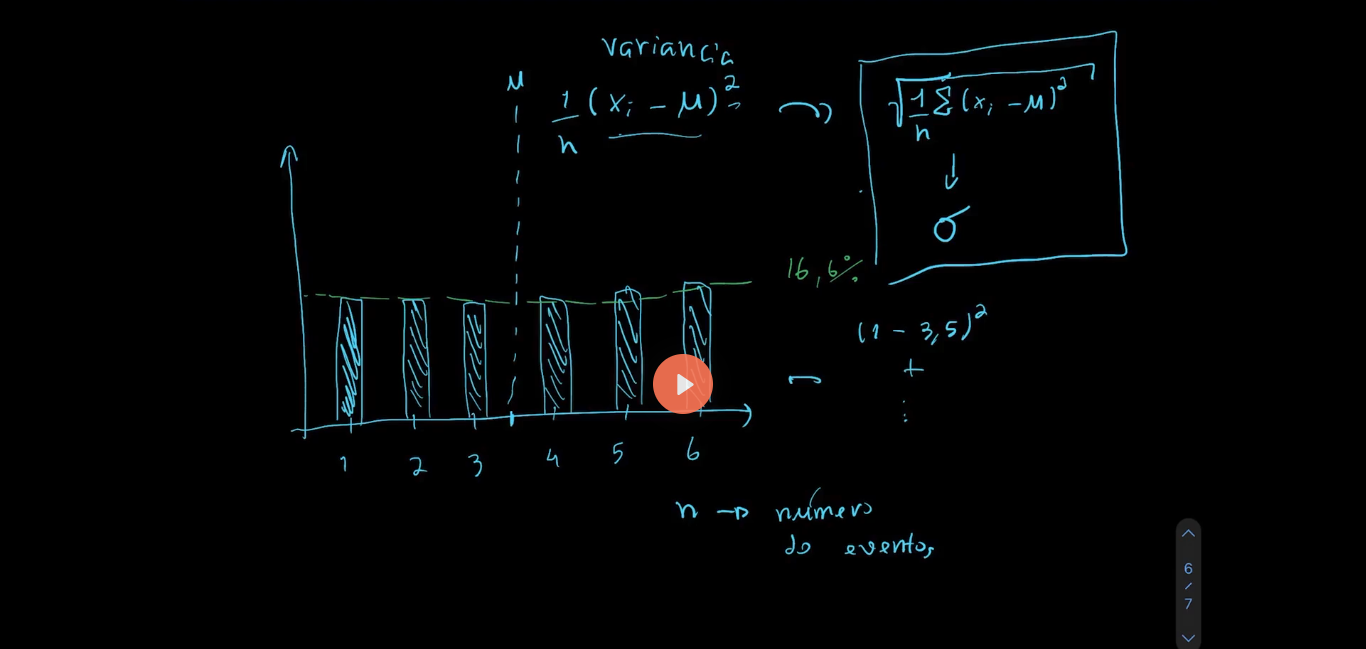 variancia
μ
1/n (xᵢ - μ)²
√(1/n Σ (xᵢ - μ)²)
↓
σ
16,6%
(1 - 3,5)²
+
⋮
1 2 3 4 5 6
n → número
de eventos
6
/
7